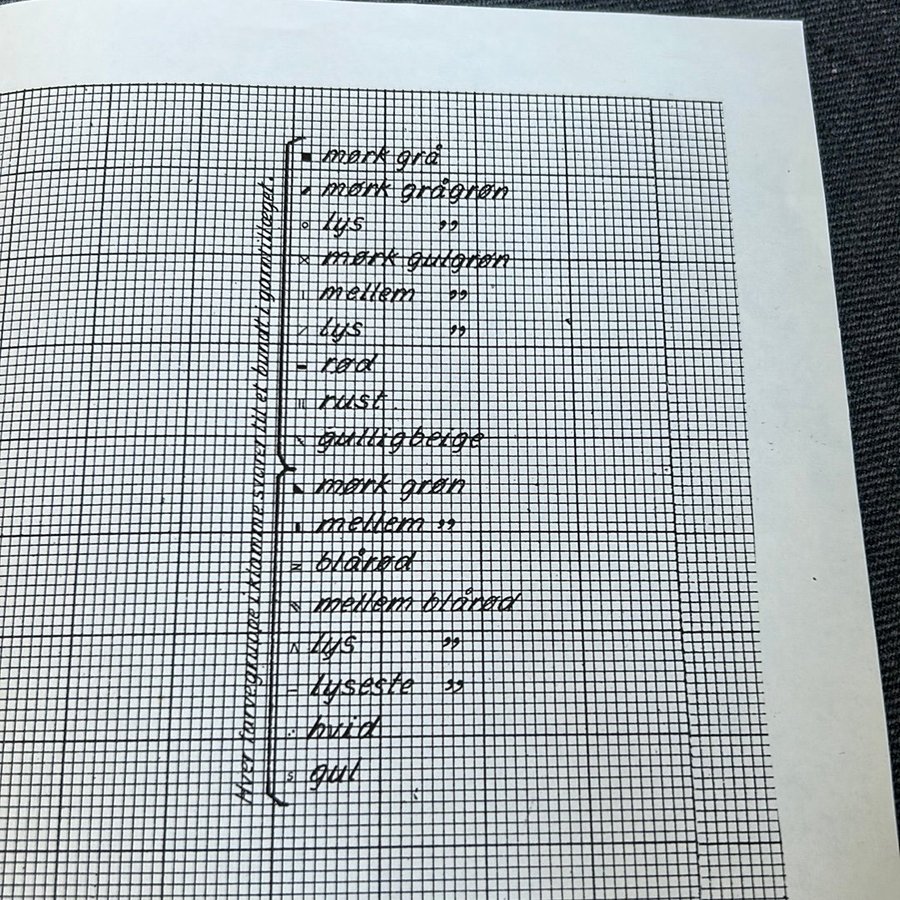 Hver farvegruppe i klamme svarer til et bundt i garntillæget.
■ mørk grå
mørk grågrøn
○ lys ,,
× mørk gulgrøn
ı mellem ,,
/ lys ,,
- rød
ıı rust
\ gulligbeige
◣ mørk grøn
ı mellem ,,
= blårød
mellem blårød
∧ lys ,,
– lyseste ,,
hvid
s gul